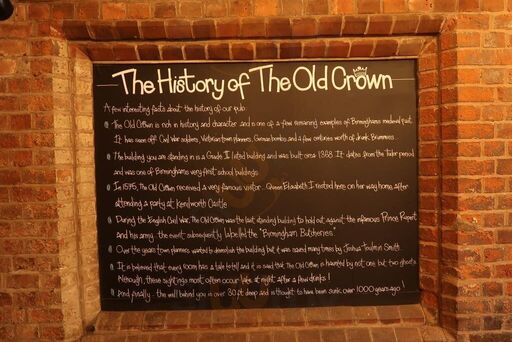 The History of The Old Crown
A few interesting facts about the history of our pub.
The Old Crown is rich in history and character and is one of a few remaining examples of Birminghams medieval past.
It has seen off Civil War soldiers, Victorian town planners, German bombs and a few centuries worth of drunk Brummies.
The building you are standing in is a Grade II listed building and was built circa 1368. It dates from the Tudor period
and was one of Birmingham's very first school buildings.
In 1575, The Old Crown received a very famous visitor. Queen Elizabeth I rested here on her way home after
attending a party at Kenilworth Castle.
During the English Civil War, The Old Crown was the last standing building to hold out against the infamous Prince Rupert
and his army. the event subsequently labelled the "Birmingham Butcheries"
Over the years town planners wanted to demolish the building but it was saved many times by Joshua Toulmin Smith.
It is believed that every room has a tale to tell and it is said that The Old Crown is haunted by not one but two ghosts.
Although, these sightings most often occur late at night after a few drinks!
And finally - the well behind you is over 30ft deep and is thought to have been sunk over 1000 years ago!